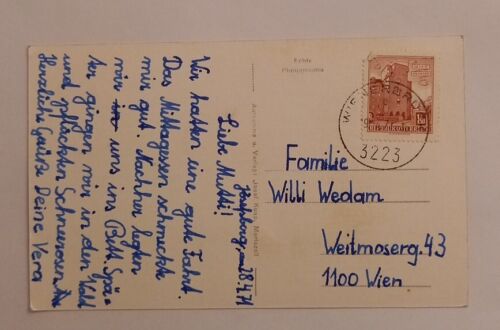 Liebe Mutti!
28.4.71
Wir hatten eine gute Fahrt.
Das Mittagessen schmeckte
mir gut. Nachher legten
wir uns ins Bett. Spä=
ter gingen wir in den Wald
und pflückten Schneerosen.
Herzliche Grüße Deine Vera
Echte
Photographie
Familie
Willi Wedam
Weitmoserg. 43
1100 Wien
3223
REPUBLIK ÖSTERREICH